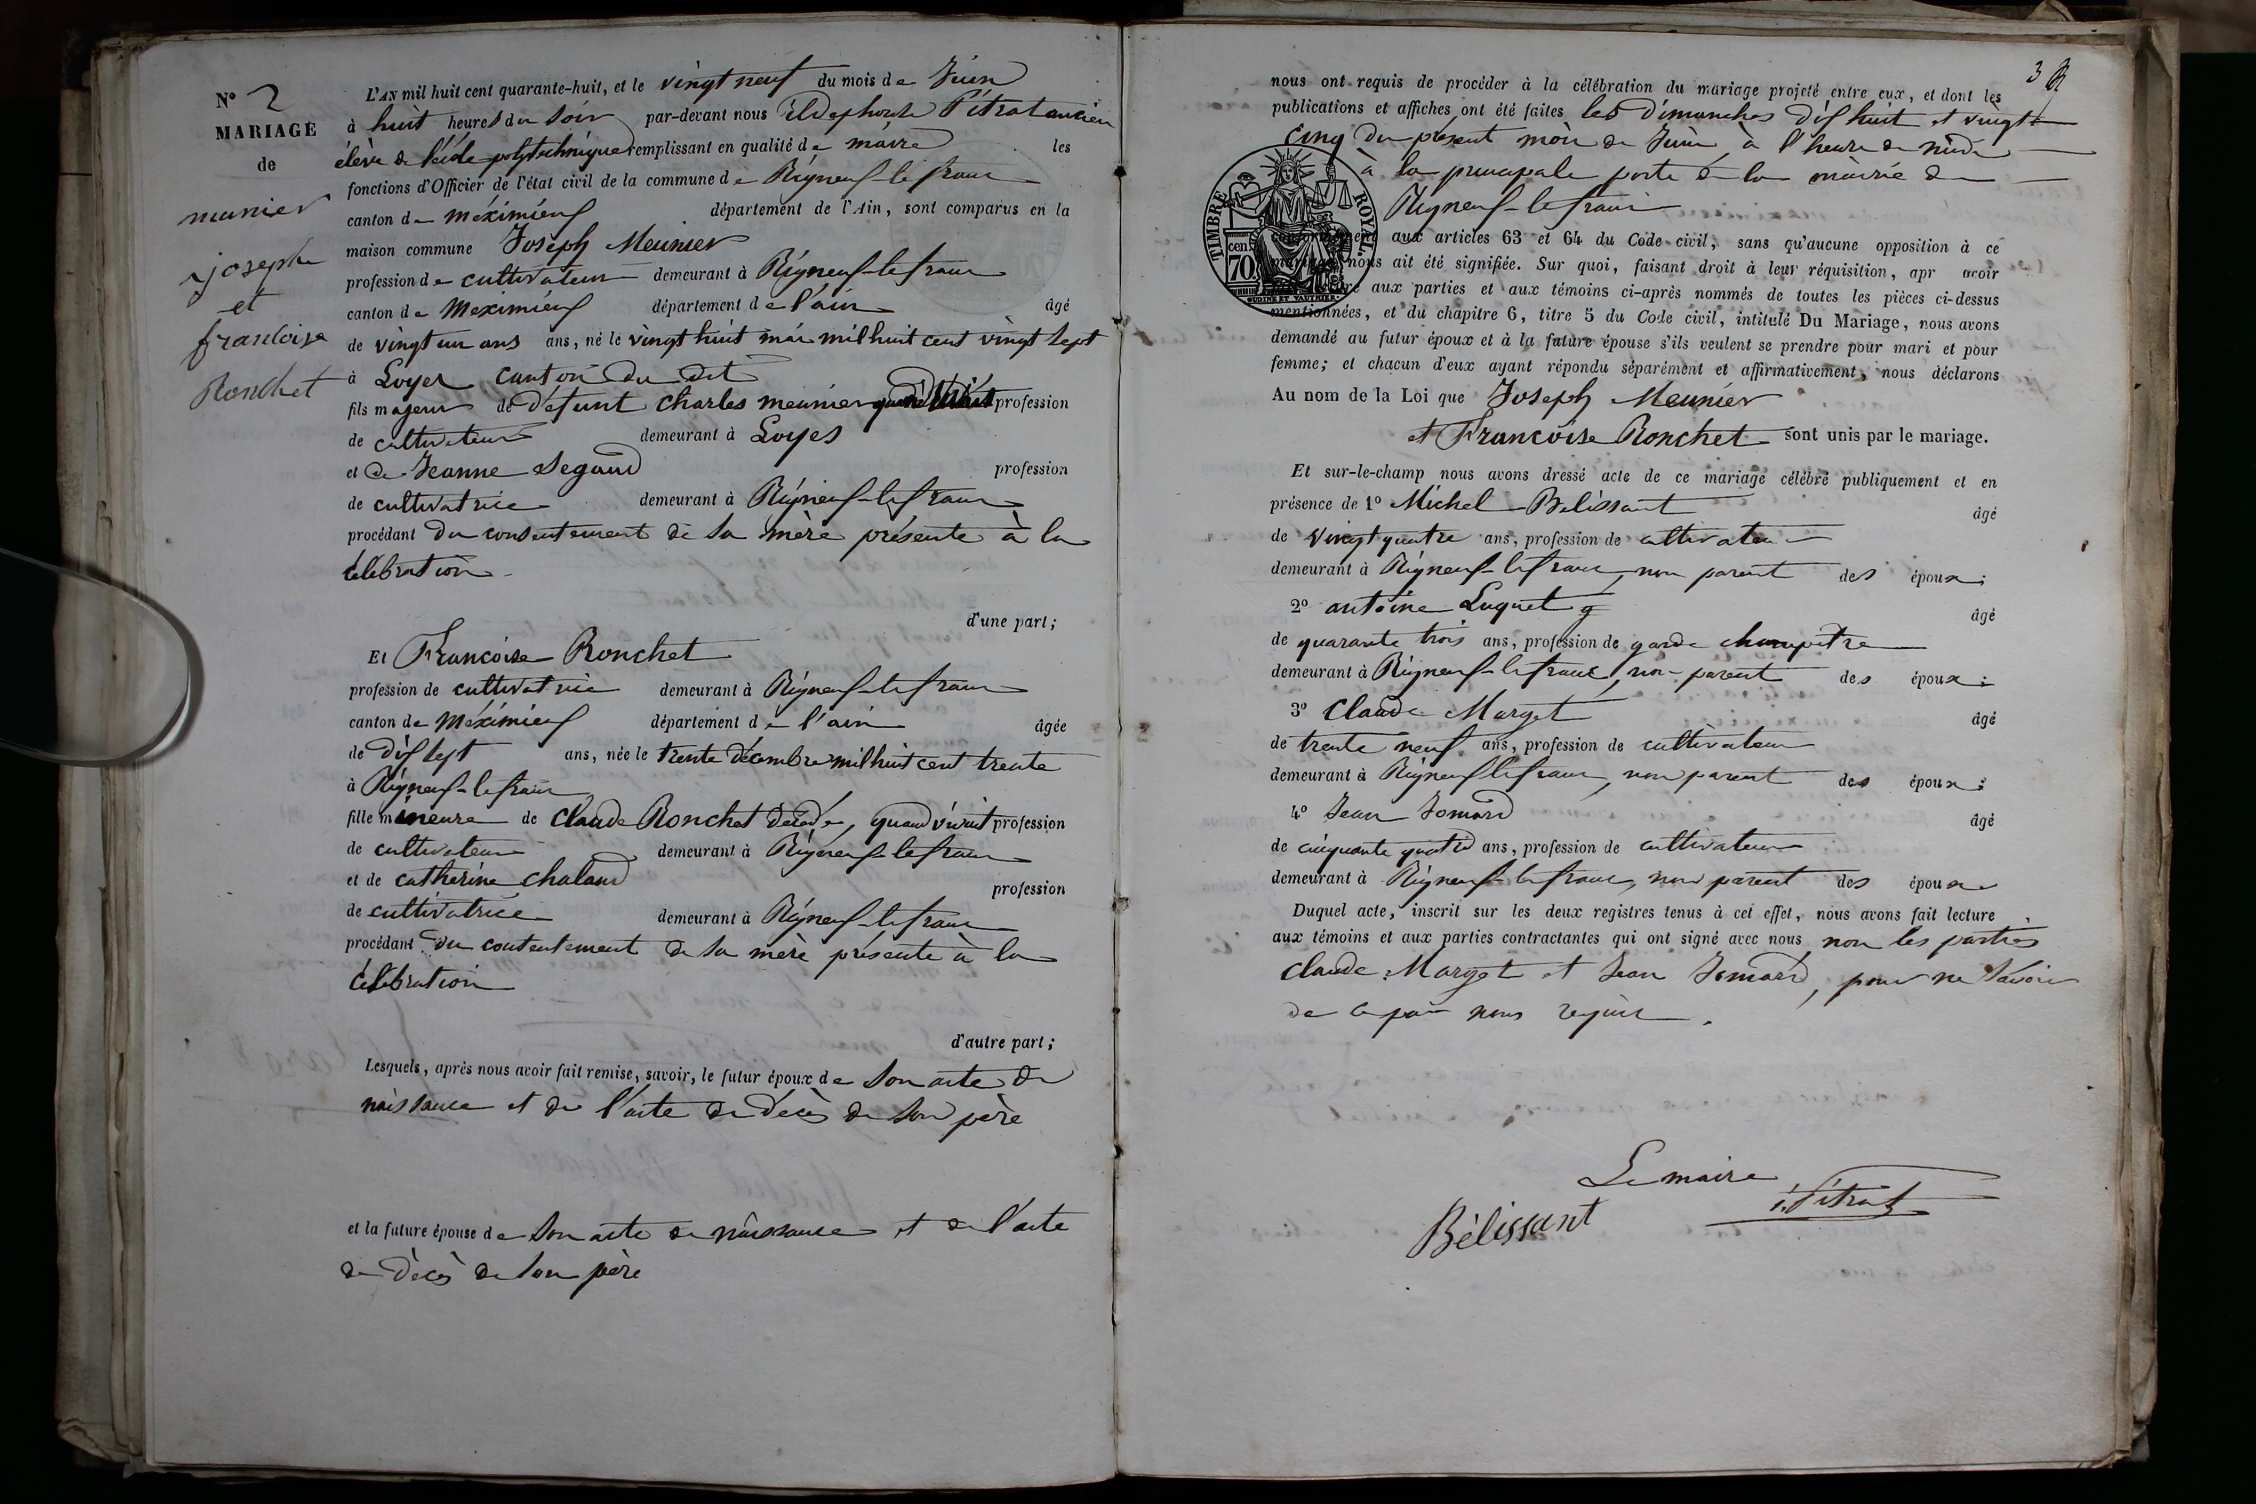 N° 2
MARIAGE
de
munier
joseph
et
francoise
Ronchet
L'AN mil huit cent quarante-huit, et le vingt neuf du mois de Juin
à huit heures du soir par-devant nous Ildephonse Pitrat ancien
élève de l'école polytechnique remplissant en qualité de maire les
fonctions d'Officier de l'état civil de la commune de Rigneux-le-franc
canton de Méximieux département de l'Ain, sont comparus en la
maison commune Joseph Meunier
profession de cultivateur demeurant à Rigneux-le-franc
canton de Meximieux département de l'ain âgé
de vingt un ans ans, né le vingt huit mai mil huit cent vingt sept
à Loyes canton du dit
fils majeur de défunt Charles meunier quand vivait profession
de cultivateur demeurant à Loyes
et de Jeanne Segaud profession
de cultivatrice demeurant à Rigneux-le-franc
procédant du consentement de sa mère présente à la
célébration
d'une part;
Et Francoise Ronchet
profession de cultivatrice demeurant à Rigneux-le-franc
canton de Méximieux département de l'ain âgée
de dix sept ans, née le trente décembre mil huit cent trente
à Rigneux-le-franc
fille mineure de Claude Ronchet décédé, quand vivait profession
de cultivateur demeurant à Rigneux-le-franc
et de catherine chaland profession
de cultivatrice demeurant à Rigneux-le-franc
procédant du consentement de sa mère présente à la
célébration
d'autre part;
Lesquels, après nous avoir fait remise, savoir, le futur époux de son acte de
naissance et de l'acte de décès de son père
et la future épouse de son acte de naissance et de l'acte
de décès de son père
3
nous ont requis de procéder à la célébration du mariage projeté entre eux, et dont les
publications et affiches ont été faites les dimanches dix huit et vingt
cinq du présent mois de Juin à l'heure de midi
à la principale porte de la mairie de
Rigneux-le-franc
TIMBRE ROYAL.
70 cen.
conformément aux articles 63 et 64 du Code civil, sans qu'aucune opposition à ce
mariage nous ait été signifiée. Sur quoi, faisant droit à leur réquisition, apr avoir
aux parties et aux témoins ci-après nommés de toutes les pièces ci-dessus
mentionnées, et du chapitre 6, titre 5 du Code civil, intitulé Du Mariage, nous avons
demandé au futur époux et à la future épouse s'ils veulent se prendre pour mari et pour
femme; et chacun d'eux ayant répondu séparément et affirmativement, nous déclarons
Au nom de la Loi que Joseph Meunier
et Francoise Ronchet sont unis par le mariage.
Et sur-le-champ nous avons dressé acte de ce mariage célébré publiquement et en
présence de 1° Michel Belissant âgé
de vingt quatre ans, profession de cultivateur
demeurant à Rigneux-le franc, non parent des époux;
2° antoine Luquet g âgé
de quarante trois ans, profession de garde champetre
demeurant à Rigneux-le franc, non parent des époux;
3° Claude Marget âgé
de trente neuf ans, profession de cultivateur
demeurant à Rigneux le franc, non parent des époux;
4° Jean Jomard âgé
de cinquante quatre ans, profession de cultivateur
demeurant à Rigneux-le franc, non parent des époux
Duquel acte, inscrit sur les deux registres tenus à cet effet, nous avons fait lecture
aux témoins et aux parties contractantes qui ont signé avec nous, non les parties
Claude Marget et Jean Jomard, pour ne savoir
de ce par nous requis.
Le maire
I. Pitrat
Bélissant